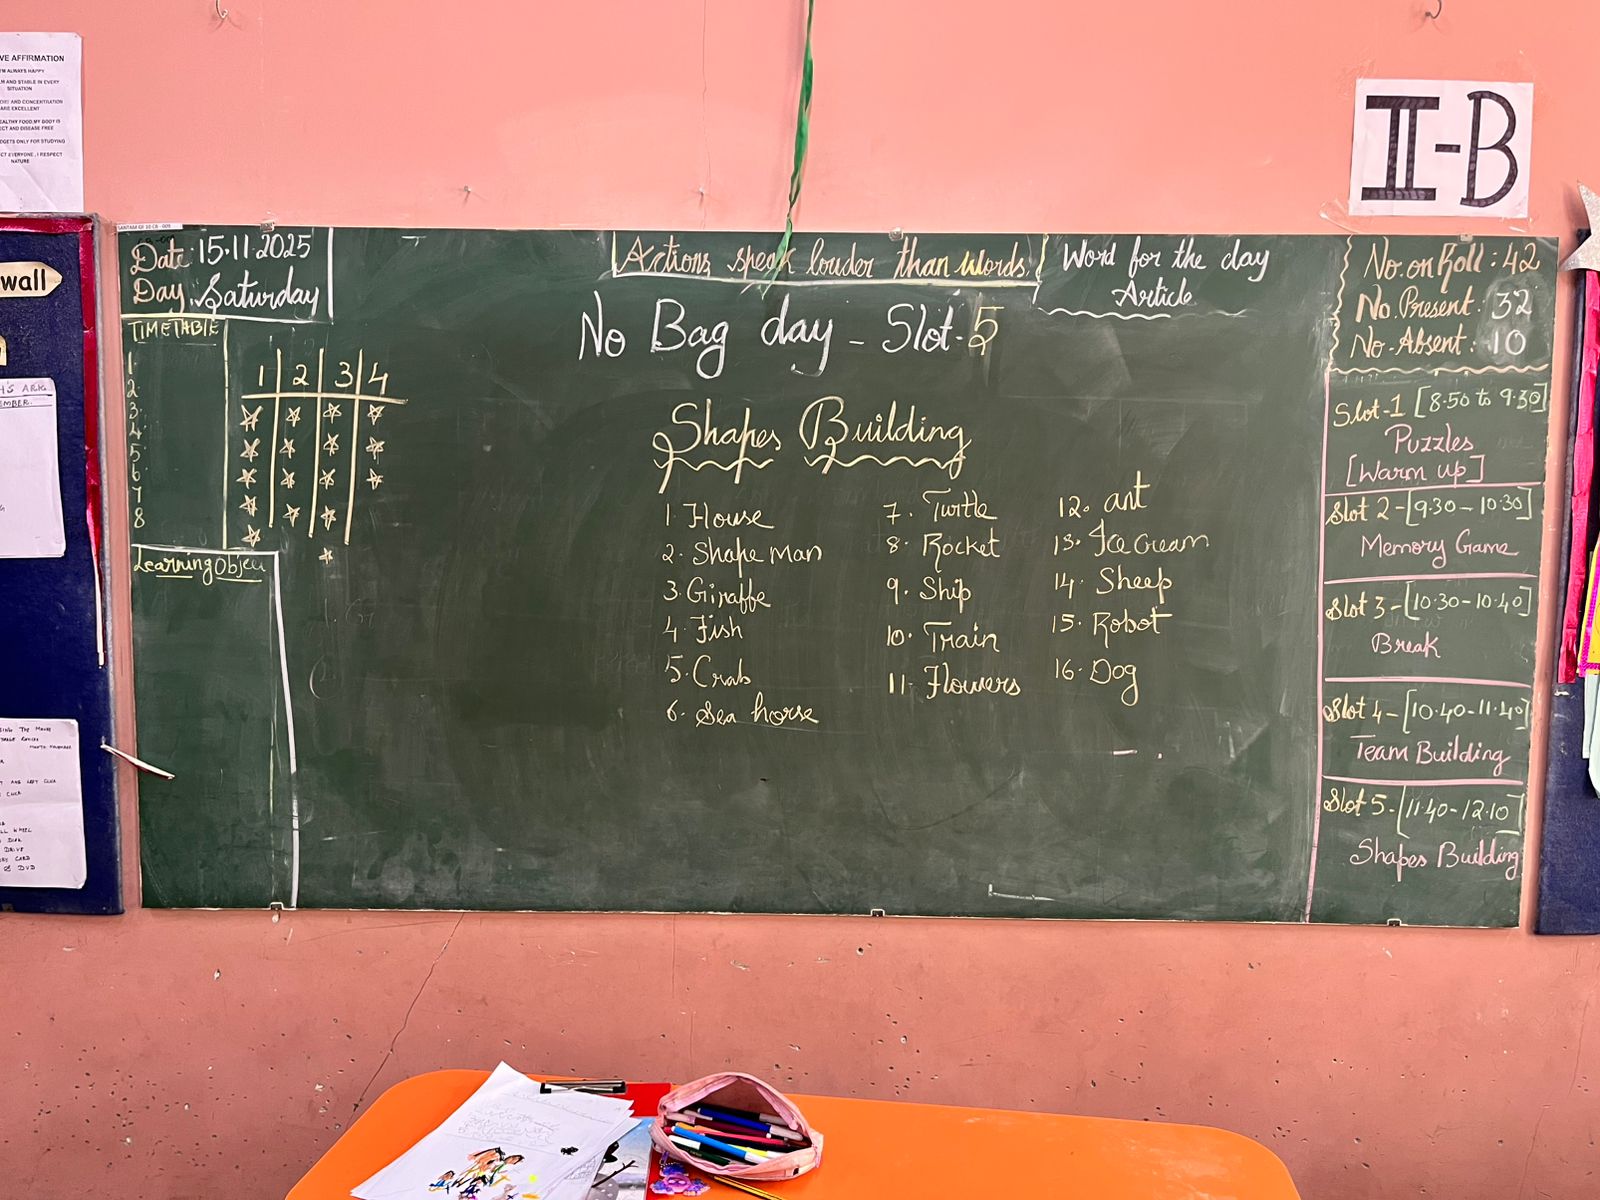 VE AFFIRMATION
M ALWAYS HAPPY
LM AND STABLE IN EVERY
SITUATION
AND CONCENTRATION
ARE EXCELLENT
EALTHY FOOD.MY BODY IS
ECT AND DISEASE FREE
DGETS ONLY FOR STUDYING
CT EVERYONE , I RESPECT
NATURE
II-B
wall
Date: 15.11.2025
Day. Saturday
Actions speak louder than words.
Word for the day
Article
No. on Roll : 42
No. Present : 32
No. Absent : 10
No Bag day - Slot-5
TIMETABLE
1.
2.
3.
4.
5.
6.
7
8
1 2 3 4
Learning Objec
Shapes Building
1. House
2. Shape Man
3. Giraffe
4. Fish
5. Crab
6. Sea horse
7. Turtle
8. Rocket
9. Ship
10. Train
11. Flowers
12. ant
13. Ice Cream
14. Sheep
15. Robot
16. Dog
Slot-1 [8.50 to 9.30]
Puzzles
[Warm up]
Slot 2 - [9.30 - 10.30]
Memory Game
Slot 3 - [10.30 - 10.40]
Break
Slot 4 - [10.40 - 11.40]
Team Building
Slot 5 - [11.40 - 12.10]
Shapes Building